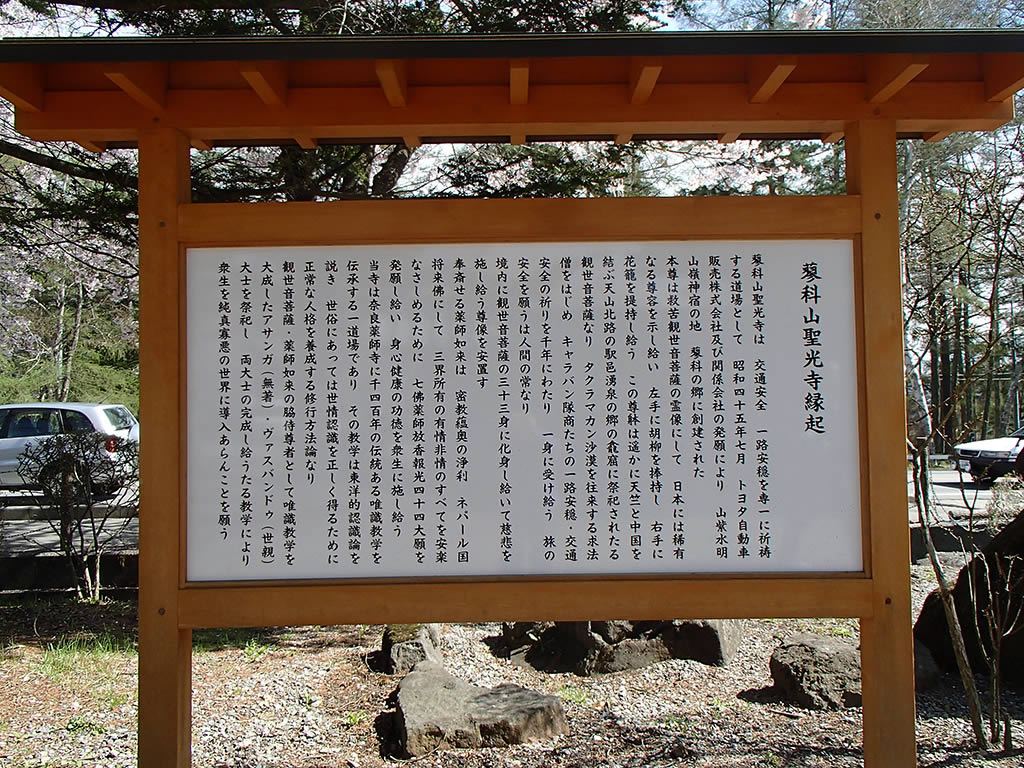 蓼科山聖光寺縁起
蓼科山聖光寺は　交通安全　一路安穏を専一に祈祷
する道場として　昭和四十五年七月　トヨタ自動車
販売株式会社及び関係会社の発願により　山紫水明
山嶺神宿の地　蓼科の郷に創建された
本尊は救苦観世音菩薩の霊像にして　日本には稀有
なる尊容を示し給い　左手に胡柳を捧持し　右手に
花籠を提持し給う　この尊躰は遥かに天竺と中国を
結ぶ天山北路の駅邑湧泉の郷の龕窟に祭祀されたる
観世音菩薩なり　タクラマカン沙漠を往来する求法
僧をはじめ　キャラバン隊商たちの一路安穏・交通
安全の祈りを千年にわたり　一身に受け給う　旅の
安全を願うは人間の常なり
境内に観世音菩薩の三十三身に化身し給いて慈悲を
施し給う尊像を安置す
奉斎せる薬師如来は　密教蘊奥の浄利　ネパール国
将来佛にして　三界所有の有情非情のすべてを安楽
なさしめるために　七佛薬師放香報光四十四大願を
発願し給い　身心健康の功徳を衆生に施し給う
当寺は奈良薬師寺に千四百年の伝統ある唯識教学を
伝承する一道場であり　その教学は東洋的認識論を
説き　世俗にあっては世情認識を正しく得るために
正常な人格を養成する修行方法論なり
観世音菩薩・薬師如来の脇侍尊者として唯識教学を
大成したアサンガ（無著）　ヴァスバンドゥ（世親）
大士を祭祀し　両大士の完成し給うたる教学により
衆生を純真寡悪の世界に導入あらんことを願う